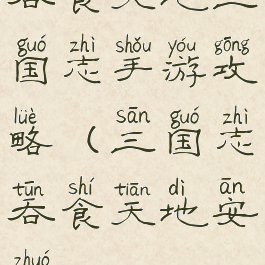 guó zhì shǒu yóu gōng
国志手游攻
lüè sān guó zhì
略（三国志
tūn shí tiān dì ān
吞食天地安
zhuó